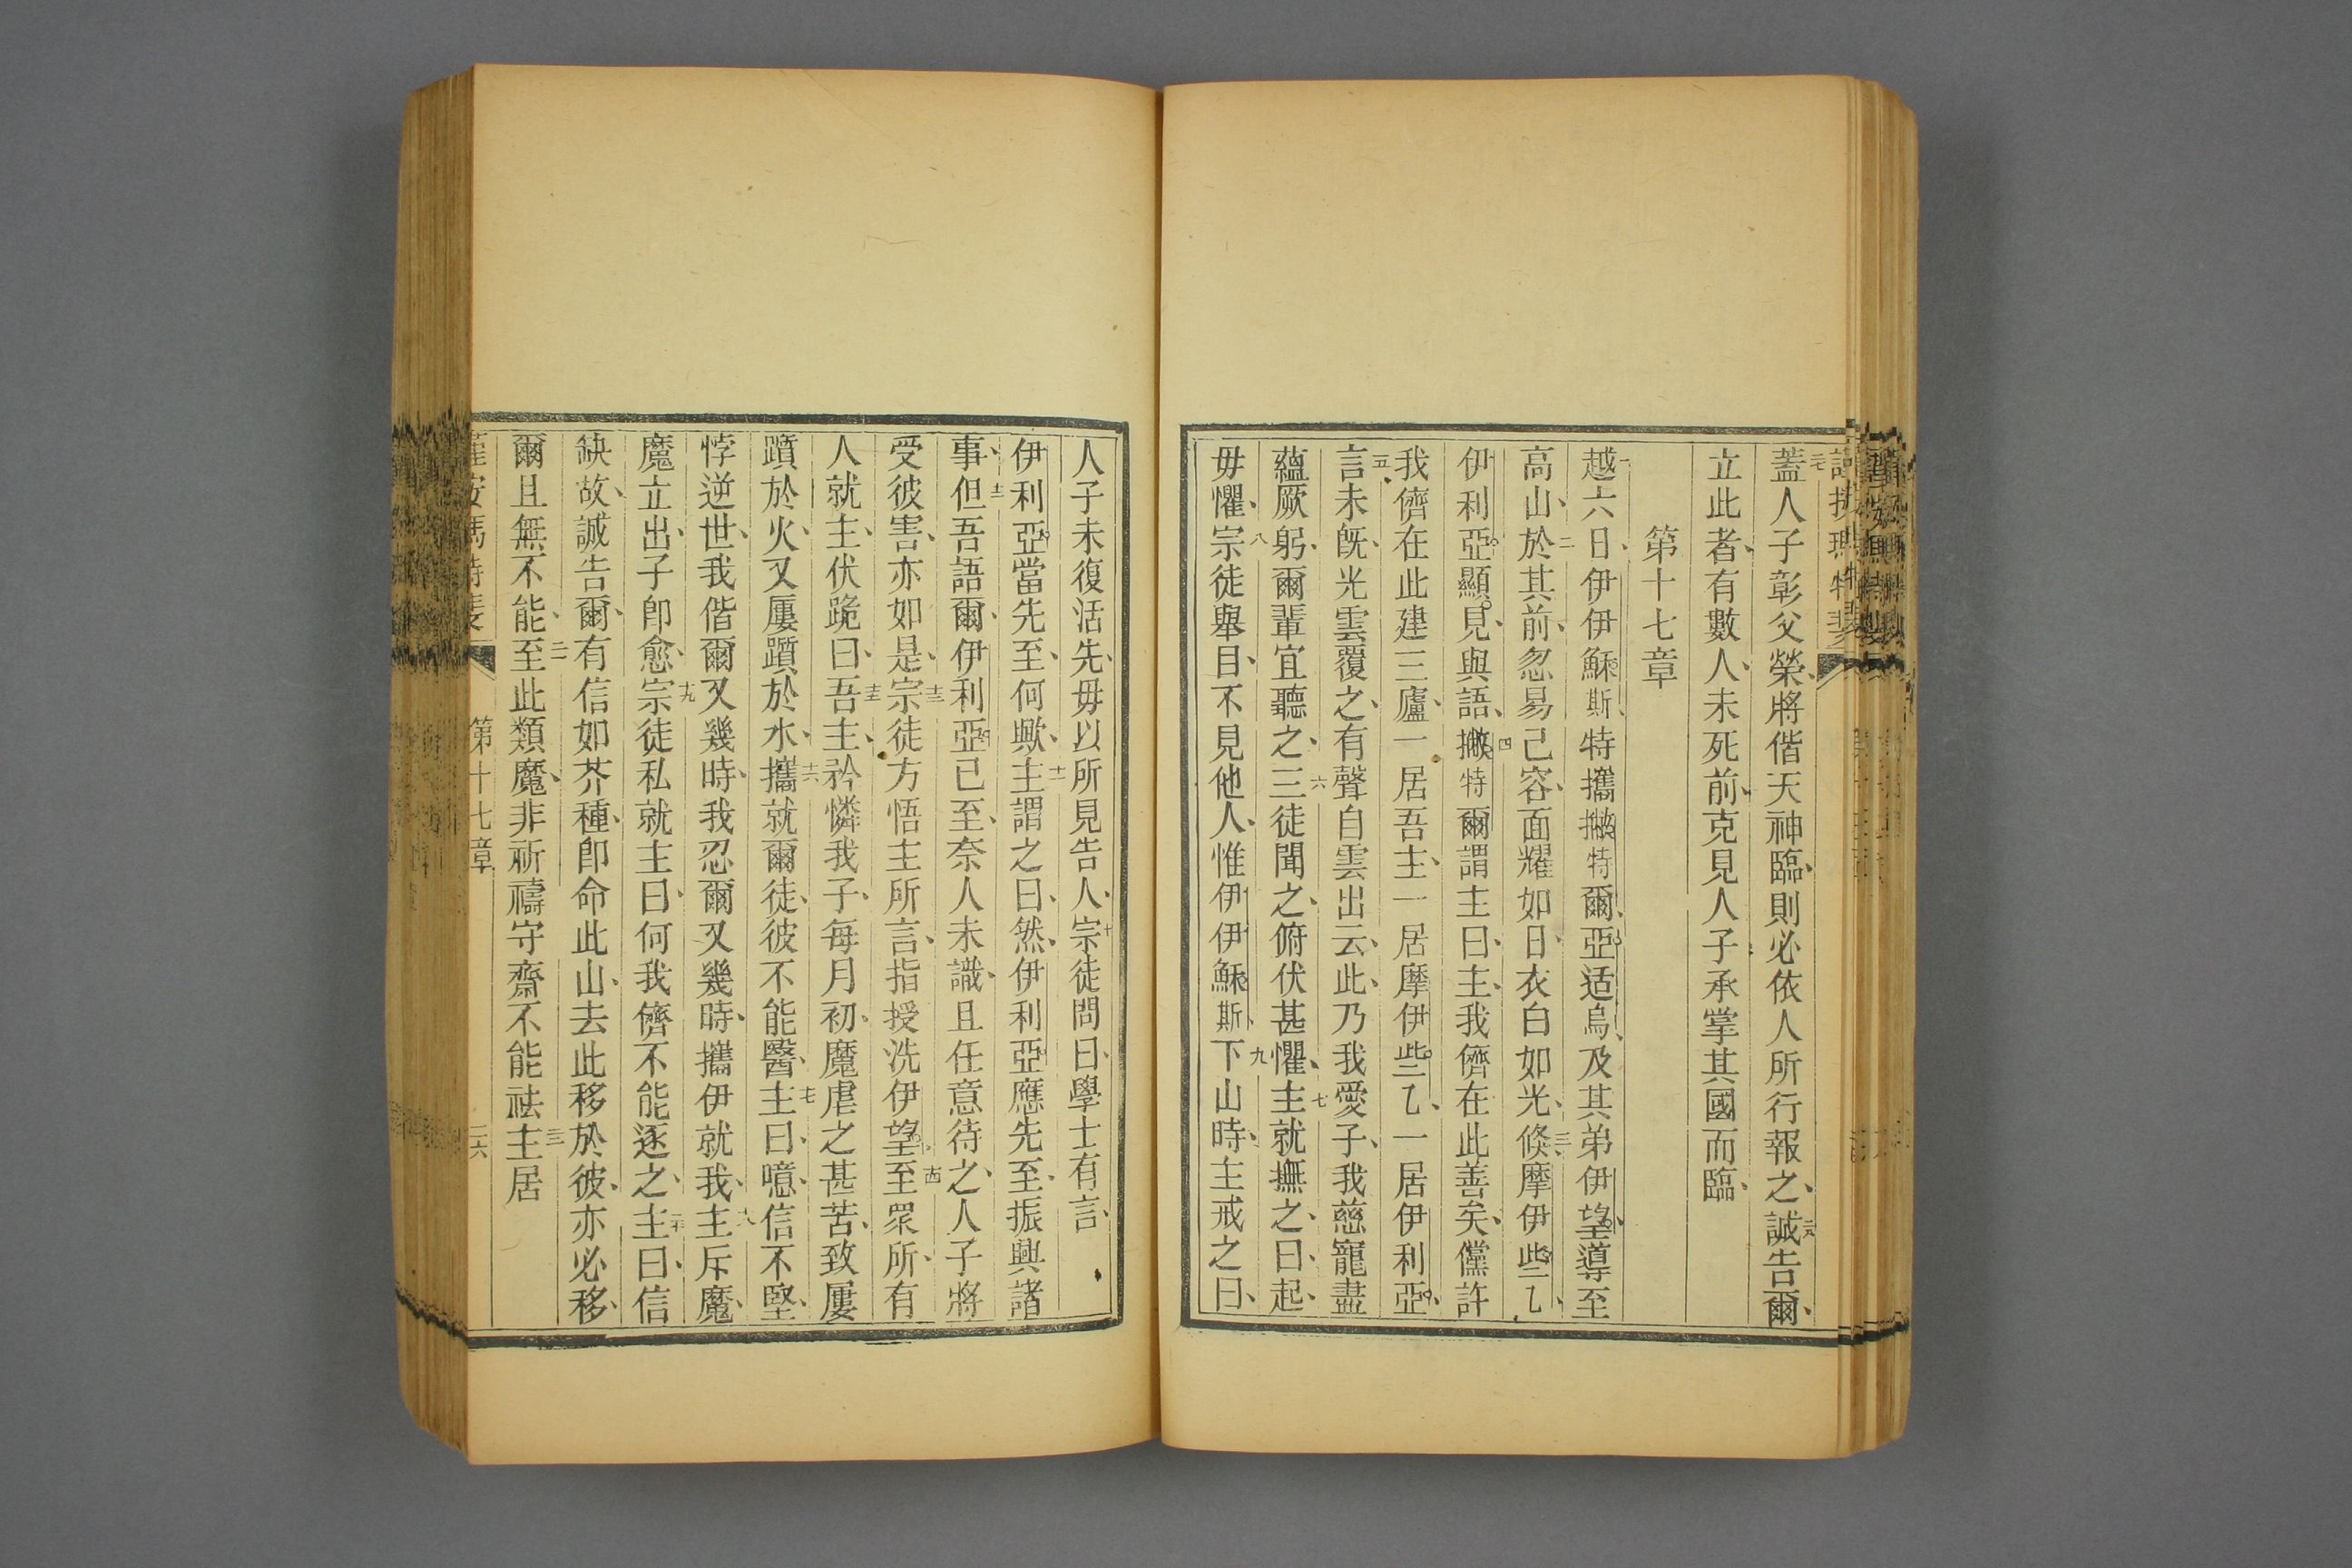 蓋人子彰父榮、將偕天神臨、則必依人所行報之、誠告爾、
立此者、有數人、未死前、克見人子承掌其國而臨、
第十七章
越六日、伊伊穌斯、特攜撇特爾、亞适烏、及其弟伊望、導至
高山、於其前、忽易己容、面耀如日、衣白如光、倐摩伊些乙、
伊利亞顯見、與語、撇特爾謂主曰、主、我儕在此善矣、儻許
我儕在此建三廬、一居吾主、一居摩伊些乙、一居伊利亞、
言未旣、光雲覆之、有聲自雲出云、此乃我愛子、我慈寵盡
蘊厥躬、爾輩宜聽之、三徒聞之、俯伏甚懼、主就撫之、曰、起、
毋懼、宗徒舉目、不見他人、惟伊伊穌斯、下山時、主戒之曰、
人子未復活先、毋以所見告人、宗徒問曰、學士有言、
伊利亞當先至、何歟、主謂之曰、然、伊利亞應先至、振興諸
事、但吾語爾、伊利亞已至、奈人未識、且任意待之、人子將
受彼害、亦如是、宗徒方悟主所言、指授洗伊望、至眾所、有
人就主、伏跪曰、吾主、矜憐我子、每月初、魔虐之甚苦、致屢
躓於火、又屢躓於水、攜就爾徒、彼不能醫、主曰、噫、信不堅、
悖逆世、我偕爾又幾時、我忍爾又幾時、攜伊就我、主斥魔、
魔立出、子卽愈、宗徒私就主曰、何我儕不能逐之、主曰、信
缺故、誠告爾、有信如芥種、卽命此山、去此移於彼、亦必移、
爾且無不能、至此類魔、非祈禱守齋不能祛、主居
第十七章
二六